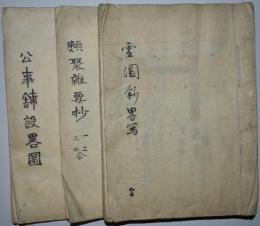 雲圖鈔畧寫
全
類聚雜要抄
一二
三四合
公事鋪設畧圖